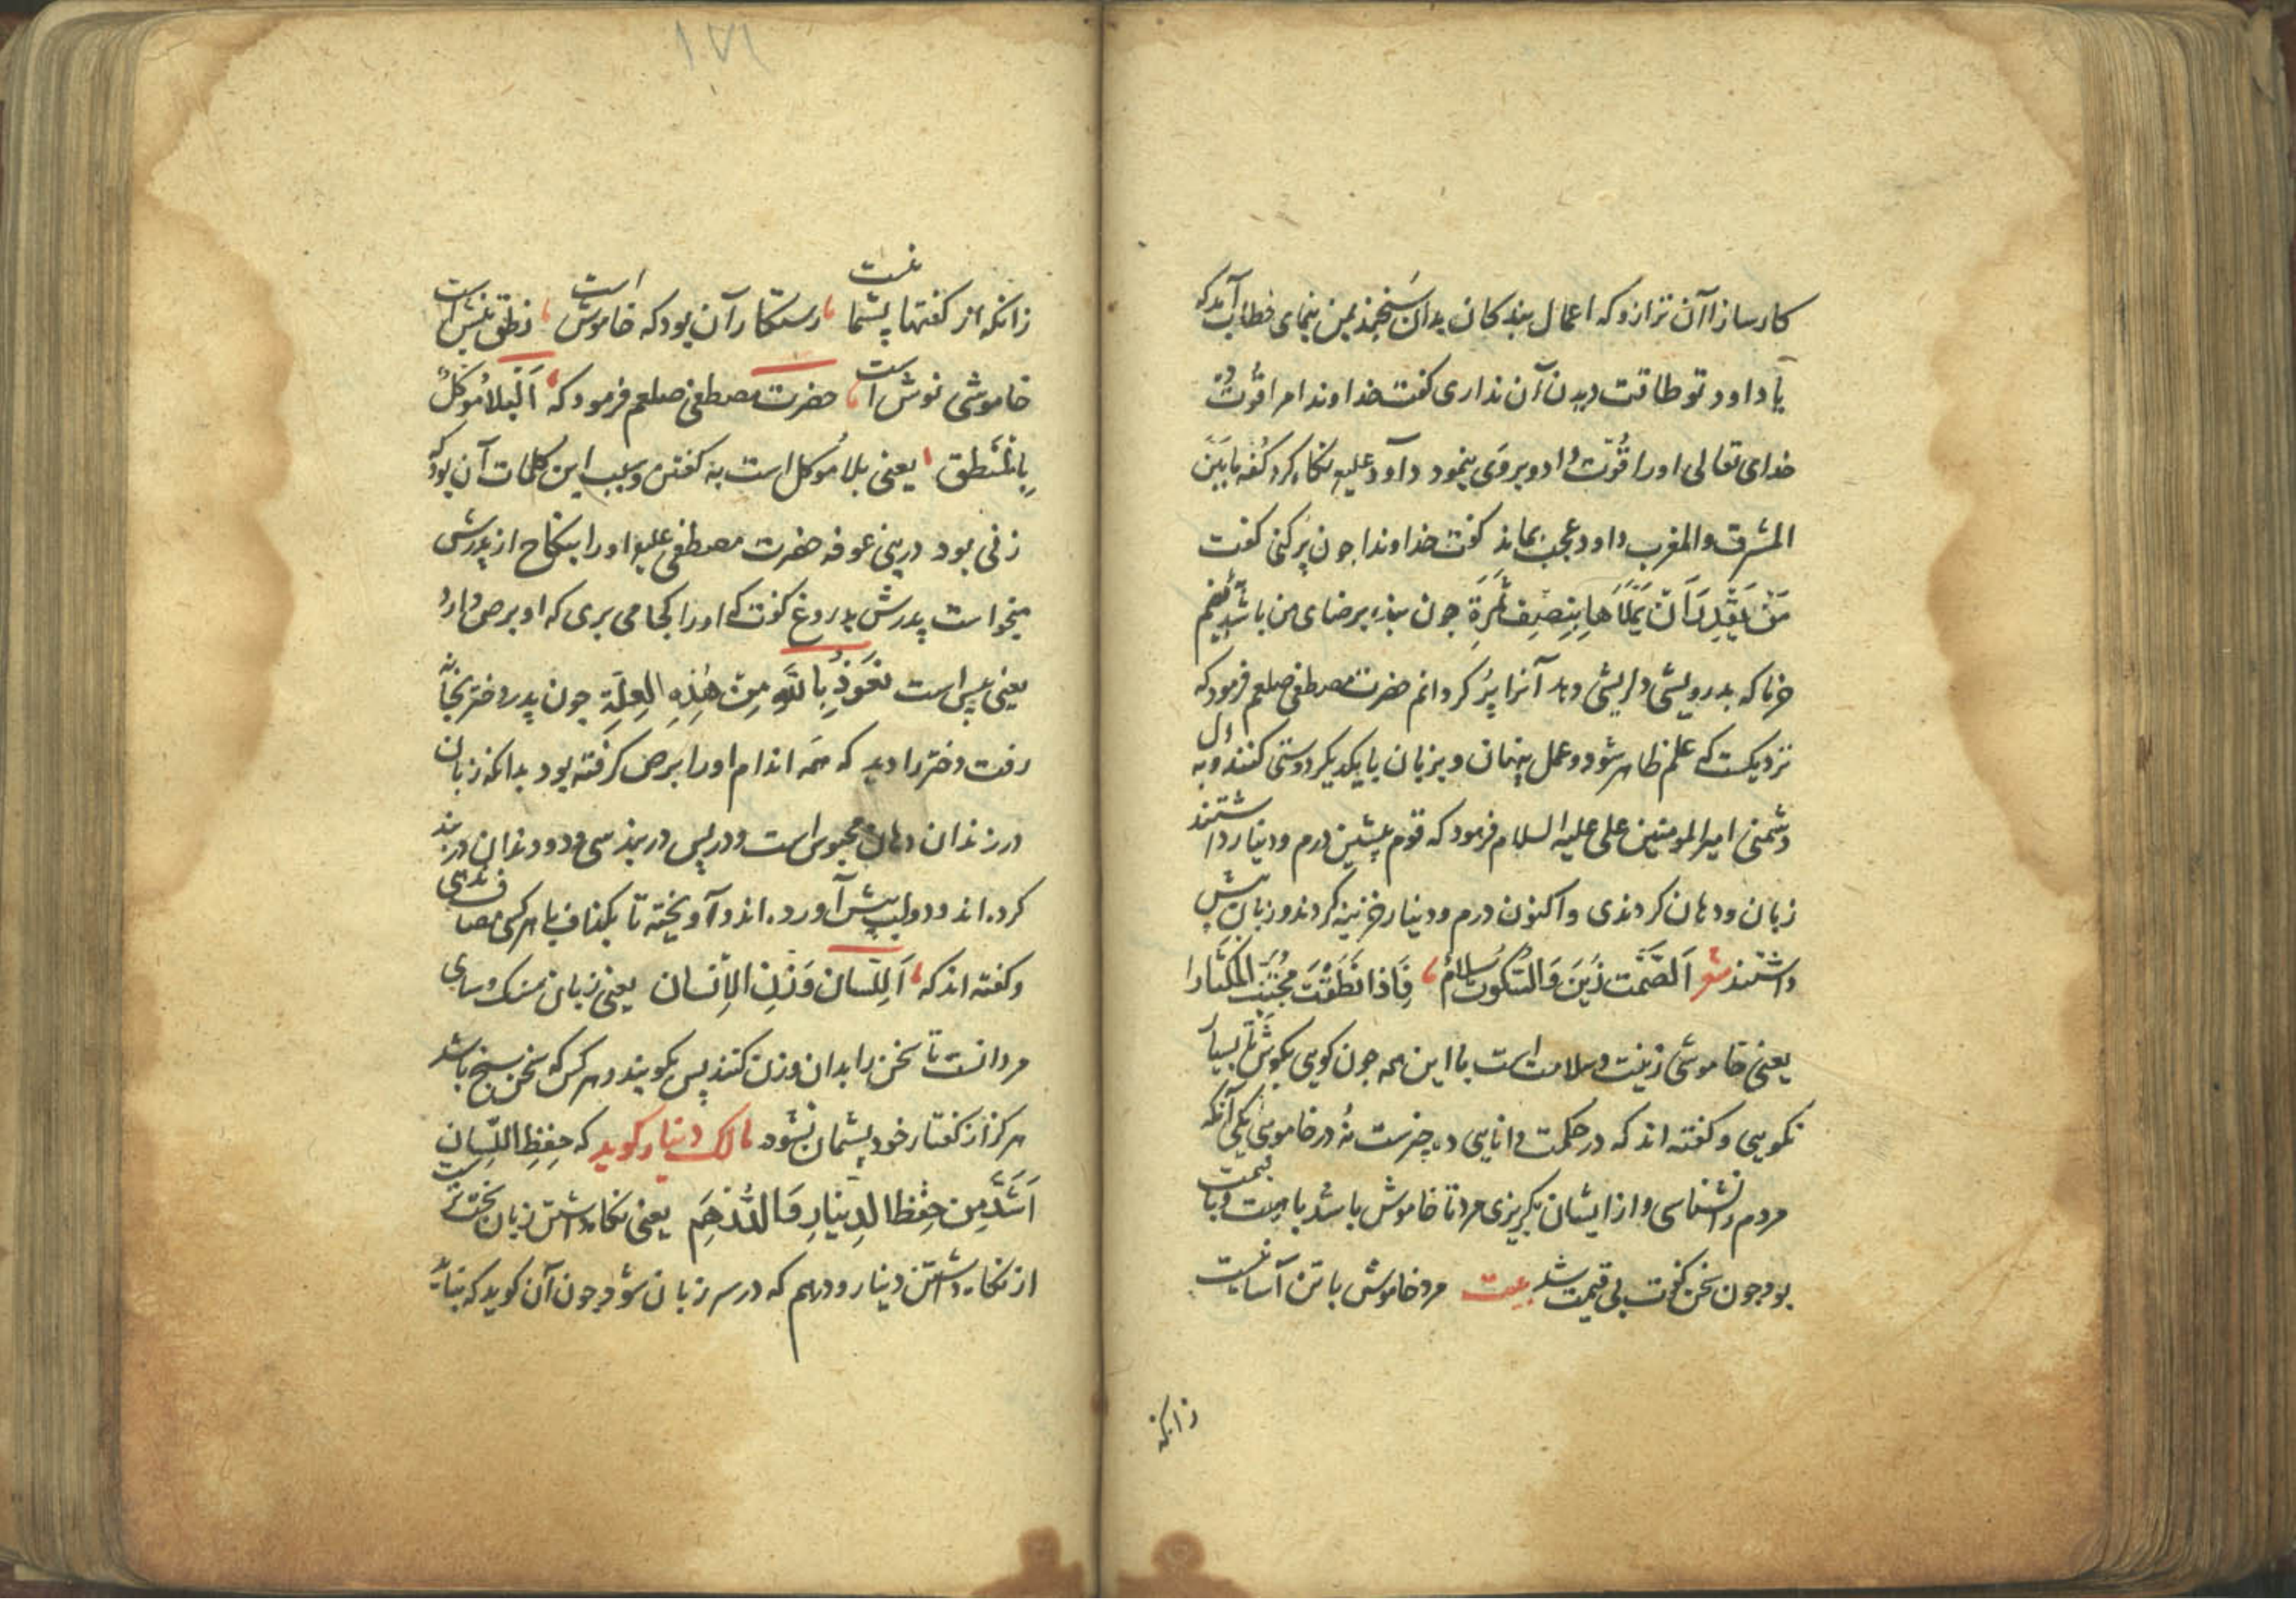 کارسازا آن ترازو که اعمال بندکان بدان سنجند بمن بنمای خطاب آمد که
یا داود تو طاقت دیدن آن نداری کفت خداوندا مرا قوّت ده
خدای تعالی اورا قوّت داد و بر وی بنمود داود علیه نکاه کرد کفه ما بین
المشرق والمغرب داود عجب بماند کفت خداوندا جون پر کنی کفت
مَن یَقْدِر اَن یَمْلَأَهَا بِنِصْفِ تَمَرَة جون بنده بر رضای من باشد نیم
خرما که بدرویشی دلریشی دهد آنرا پر کردانم حضرت مصطفی صلعم فرمود که
نزدیکست که علم ظاهر شود و عمل پنهان و بزبان با یکدیکر دوستی کنند و به دل
دشمنی امیرالمومنین علی علیه السلام فرمود که قوم پیشین درم و دینار داشتند
زبان و دهان کردندی و اکنون درم و دینار خزینه کردند و زبان پیش
داشتند شعر اَلصَّمْت زَیْنَ وَالسّکُوت سَلامُ فَاِذا نَطَقْتَ المکثارا
یعنی خاموشی زینت و سلامت است با این همه جون کویی بکوش تا بسیار
نکویی و کفته اند که در حکمت و دانایی ده جیزست نُه در خاموشی یکی آنکه
مردم نشناسی و از ایشان بکریزی مرد تا خاموش باشد با هیبت و با قیمت
بود جون سخن کفت بی قیمت شد بیت مرد خاموش با تن آسانیست
زانکه
۱۷۱
زانکه از کفتنها پشیمانیست رستکار آن بود که خاموش است نطق نیش است
خاموشی نوش است حضرت مصطفی صلعم فرمود که اَلْبَلاءُ مُوَکّلٌ
بِالْمَنْطِق یعنی بلا موکل است به کفتن و سبب این کلمات آن بود که
زنی بود در بنی عوفه حضرت مصطفی علیه اورا بنکاح از پدرش
میخواست پدرش بدروغ کفت که اورا کجا می بری که او برص دارد
یعنی پیس است نَعُوذُ بِاللّهِ مِنْ هٰذِهِ الْعِلَّة جون پدر دختر بخانه
رفت دختر را دید که همه اندام اورا برص کرفته بود بدانکه زبان
در زندان دهان محبوس است و در پس در بند سی و دو دندان در بند
کرده اند و دو لب پیش آورده اند و آویخته تا بکناف با هرکسی مصاف ندهی
و کفته اند که اَللِّسان وَزْن الاِنْسان یعنی زبان سنک وسای
مردانست تا سخن را بدان وزن کنند پس بکویند و هرکس که سخن سنج باشد
هرکز از کفتار خود پشیمان نشود مالک دینار کوید که حِفْظِ اللِّسان
اَشَدُّ مِن حِفْظ الدِینَارِ وَالدِّرْهَم یعنی نکاه داشتن زبان سخت تر است
از نکاه داشتن دینار و درهم که در سر زبان شود جون آن کوید که نباید